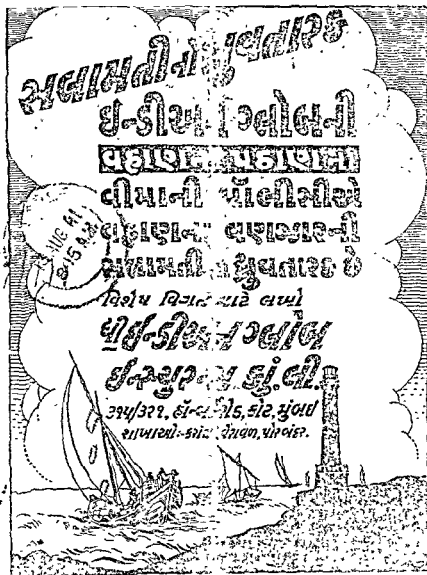 સલામતીનો ધ્રુવતારક
ઇન્ડીઅન ગ્લોબની
વહાણના પઠાણના
વીમાની પૉલીસીએ
વહાણના વણજારની
સલામતીના ધ્રુવતારક છે
વિશેષ વિગત માટે લખો
ધી ઇન્ડીઅન ગ્લોબ
ઇન્સ્યુરન્સ કું. લી.
૩૧૫/૩૨૧, હૉર્નબી રોડ, કોટ, મુંબઇ
શાખાઓ:- કરાંચી, વેરાવળ, પોરબંદર.
8-15 A.M.